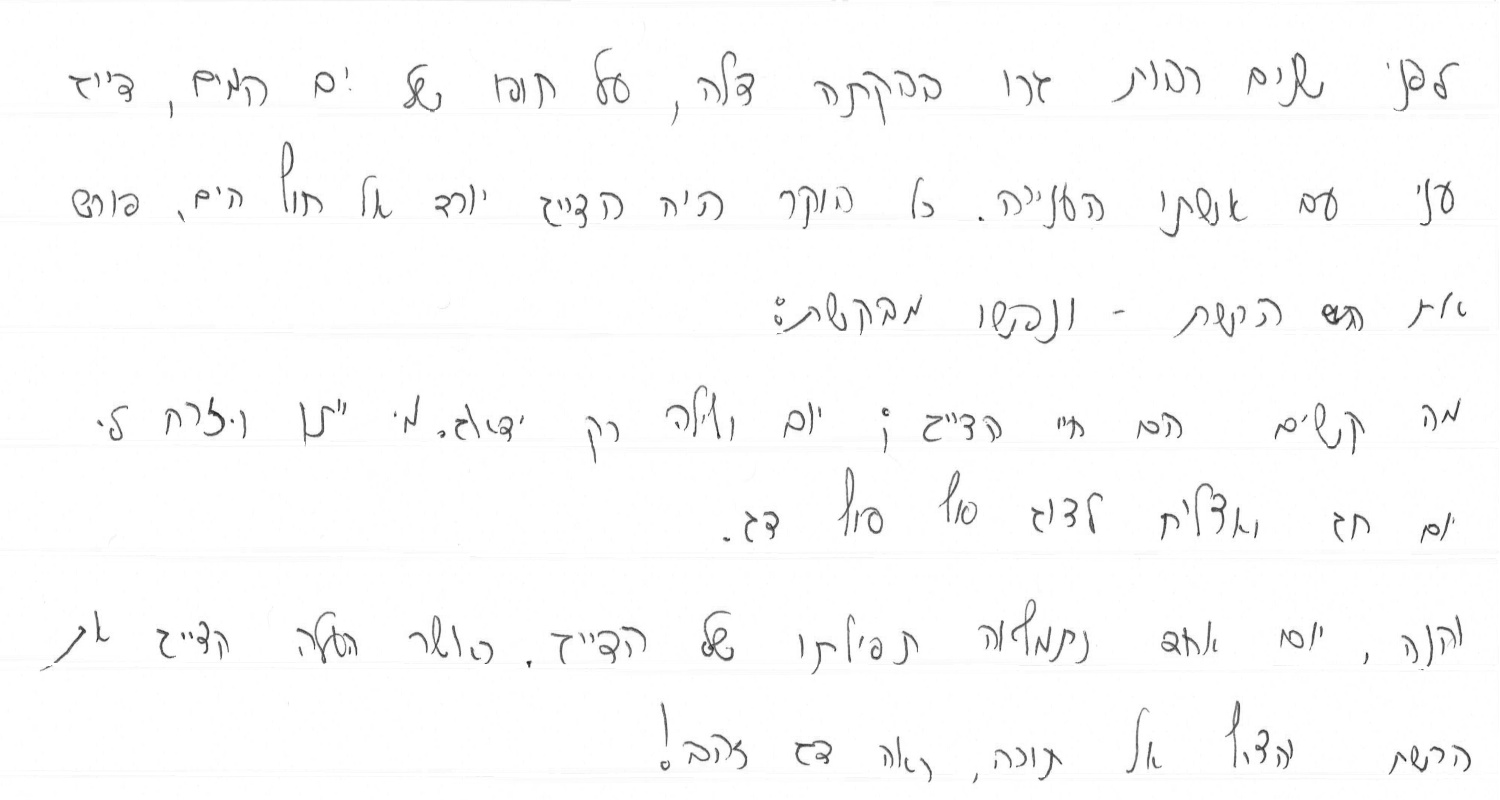 לפני שנים רבות גרו בבקתה דלה, על חופו של ים המים, דייג
עני עם אשתו הענייה. כל בוקר היה הדייג יורד אל חוף הים, פורש
את הרשת - ונפשו מבקשת:
מה קשים הם חיי הדייג; יום ולילה רק ידאג. מי ייתן ויזרח לי
יום חג ואצליח לדוג סוף סוף דג.
והנה, יום אחד נתמלאה תפילתו של הדייג. כאשר העלה הדייג את
הרשת והציץ אל תוכה, ראה דג זהב!